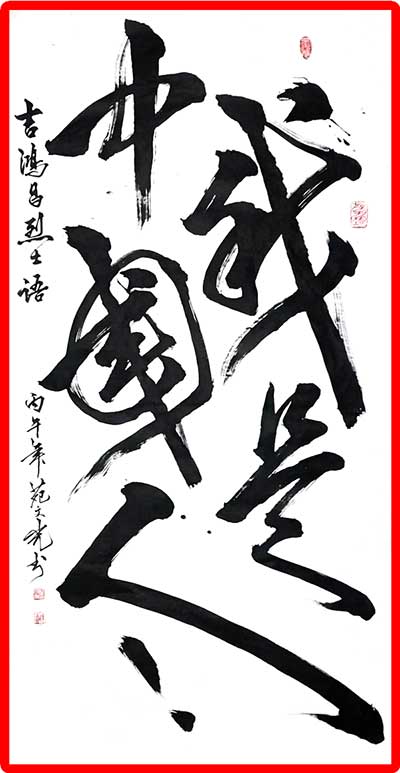 我是
中國人
吉鴻昌烈士語
丙午年范文光书